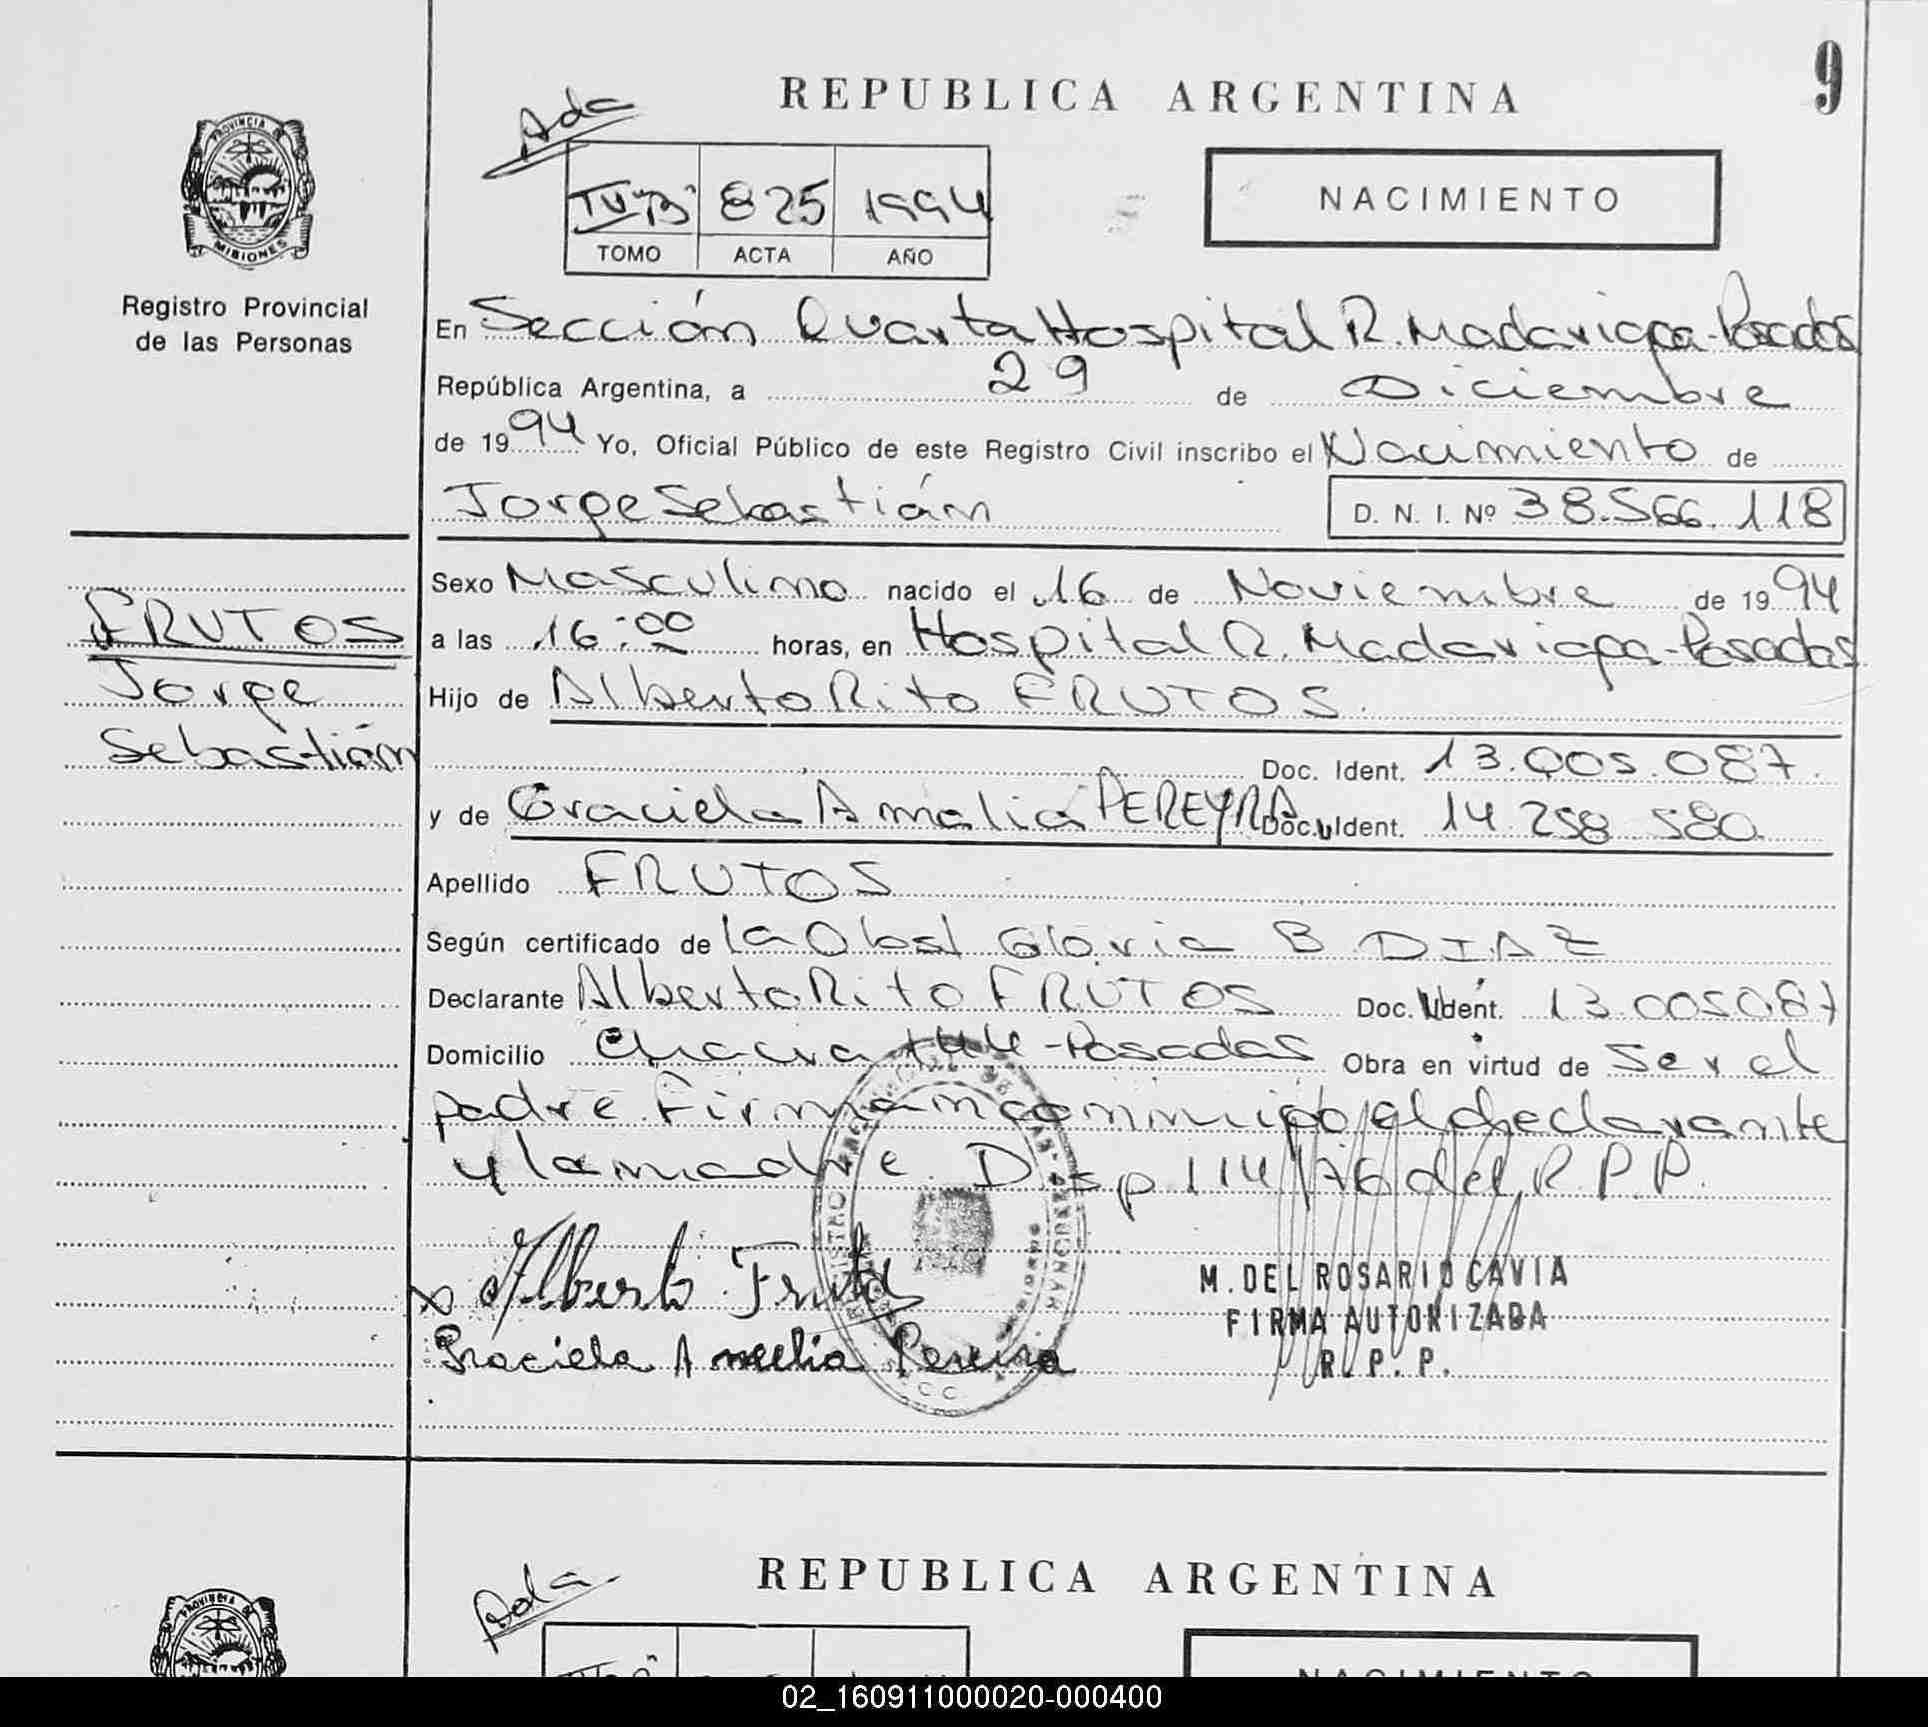 9
REPUBLICA ARGENTINA
Ada
PROVINCIA DE
MISIONES
Registro Provincial
de las Personas
825 1994
TOMO ACTA AÑO
NACIMIENTO
En Sección Quarta Hospital R. Madariaga-Posadas
República Argentina, a 29 de Diciembre
de 1994 Yo, Oficial Público de este Registro Civil inscribo el Nacimiento de
Jorge Sebastián D. N. I. Nº 38.566.118
Sexo Masculino nacido el 16 de Noviembre de 1994
FRUTOS
Jorge
Sebastián
a las 16:00 horas, en Hospital R. Madariaga-Posadas
Hijo de Alberto Rito FRUTOS.
Doc. Ident. 13.005.087.
y de Graciela Amalia PEREYRA Doc. Ident. 14.258.580
Apellido FRUTOS
Según certificado de la Obst Gloria B DIAZ
Declarante Alberto Rito FRUTOS Doc. Ident. 13.005087
Domicilio Chacra 144-Posadas Obra en virtud de Ser el
padre. Firman conmigo el declarante
y la madre. Disp 114/76 del R.P.P.
Alberto Frutos
Graciela Amelia Pereira
M. DEL ROSARIO CAVIA
FIRMA AUTORIZADA
R. P. P.
REPUBLICA ARGENTINA
Ada
PROVINCIA
NACIMIENTO
02_160911000020-000400